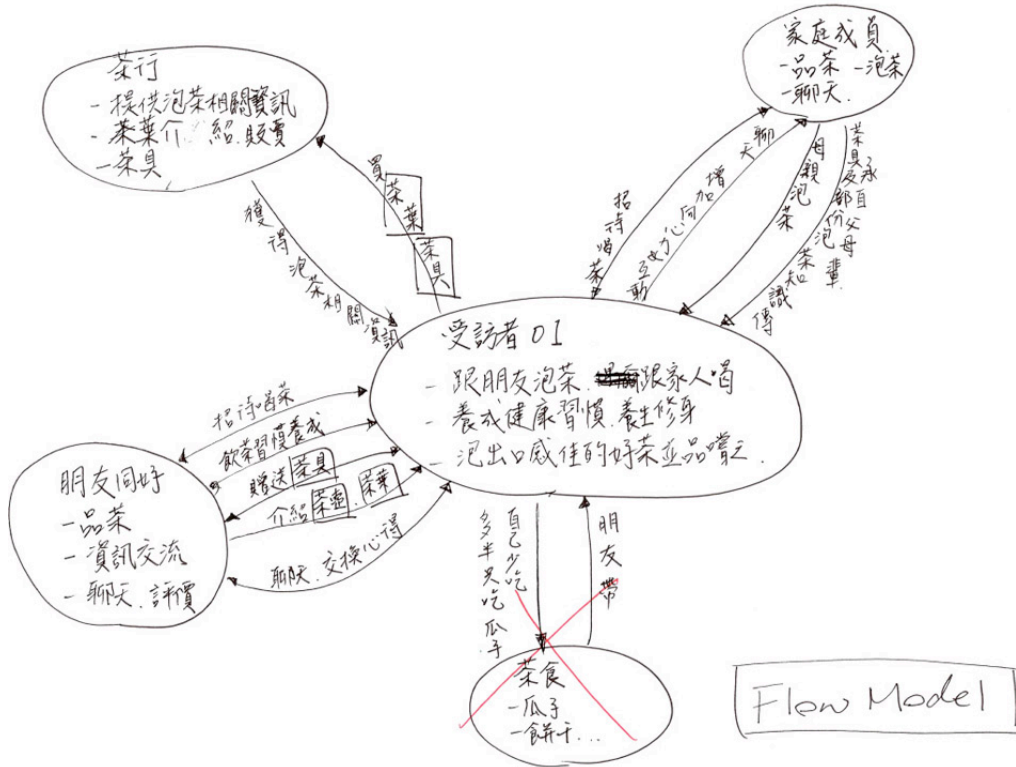 茶行
- 提供泡茶相關資訊
- 茶葉介紹.販賣
- 茶具
家庭成員
- 品茶 - 泡茶
- 聊天.
買茶葉
茶具
獲得泡茶相關資訊
招待喝茶
聊天增加向心力與互動
母親泡茶
茶具及部份泡茶知識
承自父母輩傳
受訪者 01
- 跟朋友泡茶. 跟家人喝
- 養成健康習慣.養生修身
- 泡出口感佳的好茶並品嚐之.
招待喝茶
飲茶習慣養成
贈送茶具
介紹茶壺.茶葉
聊天.交換心得
朋友同好
- 品茶
- 資訊交流
- 聊天.評價
自己少吃
多半只吃瓜子
朋友帶
茶食
- 瓜子
- 餅干...
Flow Model